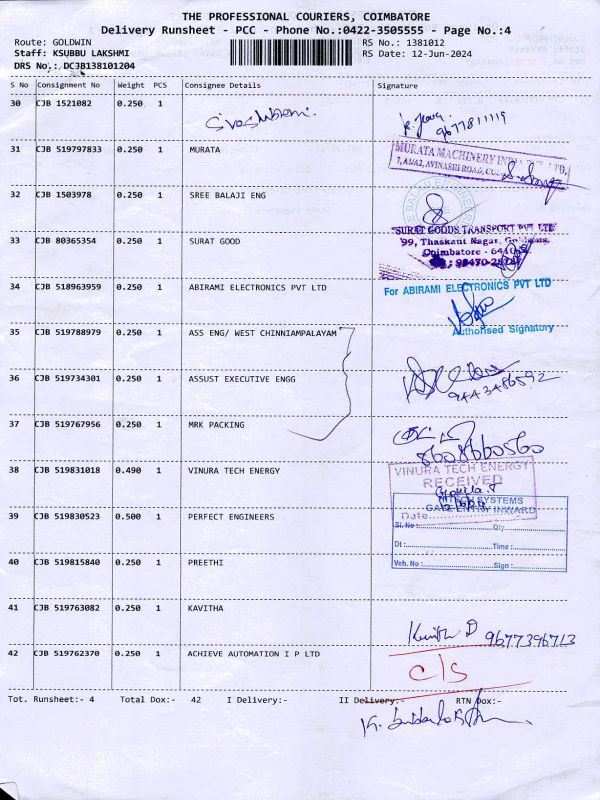 THE PROFESSIONAL COURIERS, COIMBATORE
Delivery Runsheet - PCC - Phone No.:0422-3505555 - Page No.:4
Route: GOLDWIN RS No.: 1381012
Staff: KSUBBU LAKSHMI RS Date: 12-Jun-2024
DRS No.: DCJB138101204
S No Consignment No Weight PCS Consignee Details Signature
30 CJB 1521082 0.250 1
9677811119
31 CJB 519797833 0.250 1 MURATA
MURATA MACHINERY
AVINASHI ROAD,
32 CJB 1503978 0.250 1 SREE BALAJI ENG
33 CJB 80365354 0.250 1 SURAT GOOD
"SURAT GOODS TRANSPORT PVT LTD"
99, Thaskant Nagar,
Coimbatore -
34 CJB 518963959 0.250 1 ABIRAMI ELECTRONICS PVT LTD
For ABIRAMI ELECTRONICS PVT LTD
Authorised Signatory
35 CJB 519788979 0.250 1 ASS ENG/ WEST CHINNIAMPALAYAM
36 CJB 519734301 0.250 1 ASSUST EXECUTIVE ENGG
9443486592
37 CJB 519767956 0.250 1 MRK PACKING
8608660560
38 CJB 519831018 0.490 1 VINURA TECH ENERGY
VINURA TECH ENERGY
RECEIVED
Date
SYSTEMS
INWARD
Sl. No : Qty
39 CJB 519830523 0.500 1 PERFECT ENGINEERS
Dt : Time :
Veh. No : Sign :
40 CJB 519815840 0.250 1 PREETHI
41 CJB 519763082 0.250 1 KAVITHA
9677396713
42 CJB 519762370 0.250 1 ACHIEVE AUTOMATION I P LTD
c/s
Tot. Runsheet:- 4 Total Dox:- 42 I Delivery:- II Delivery:- RTN Dox:-